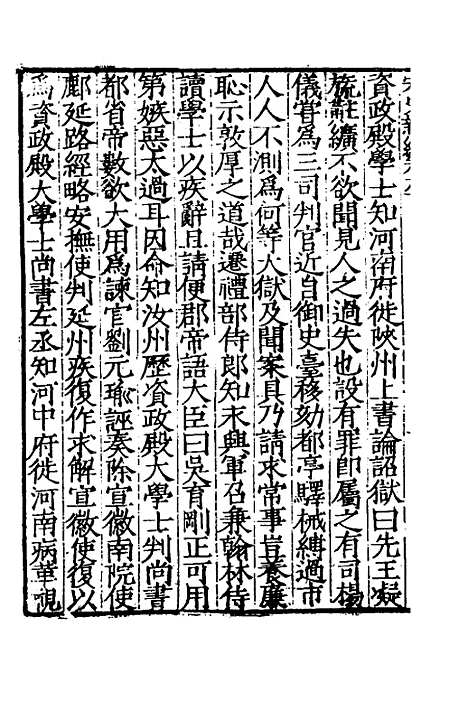 資政殿學士知河南府徙陝州上書論詔獄曰先王凝
旒黈纊不欲聞見人之過失也設有罪即屬之有司楊
儀嘗爲三司判官近自御史臺移劾都亭驛械縛過市
人人不測爲何等大獄及聞案具乃請求常事豈養廉
恥示敦厚之道哉遷禮部侍郎知永興軍召兼翰林侍
讀學士以疾辭且請便郡帝語大臣曰吳育剛正可用
第嫉惡太過耳因命知汝州歷資政殿大學士判尚書
都省帝數欲大用爲諫官劉元瑜誣奏除宣徽南院使
鄜延路經略安撫使判延州疾復作求解宣徽使復以
爲資政殿大學士尚書左丞知河中府徙河南病革視